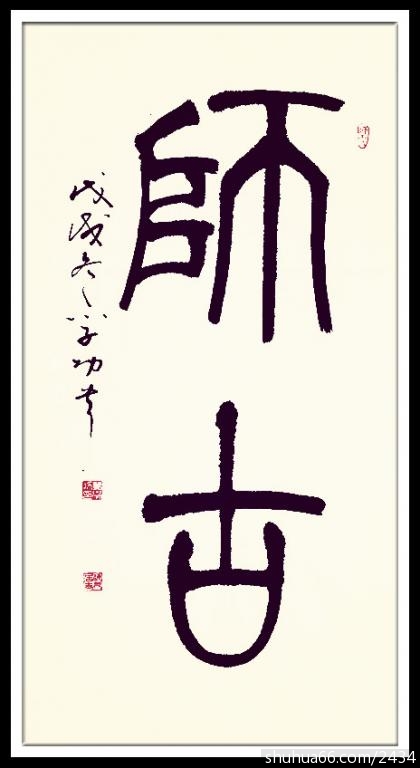 師古
戊戌冬之学功書
shuhua66.com/2434